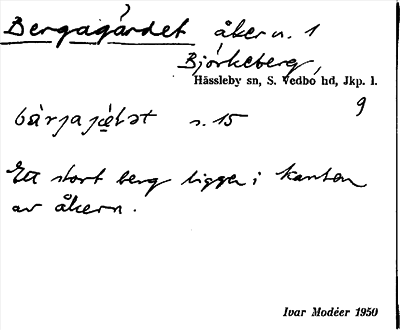 Bergagärdet åker n. 1
Björkeberg,
Hässleby sn, S. Vedbo hd, Jkp. l.
9
bä̀rjajɶ́Lət s. 15
Ett stort berg ligger i kanten
av åkern.
Ivar Modéer 1950